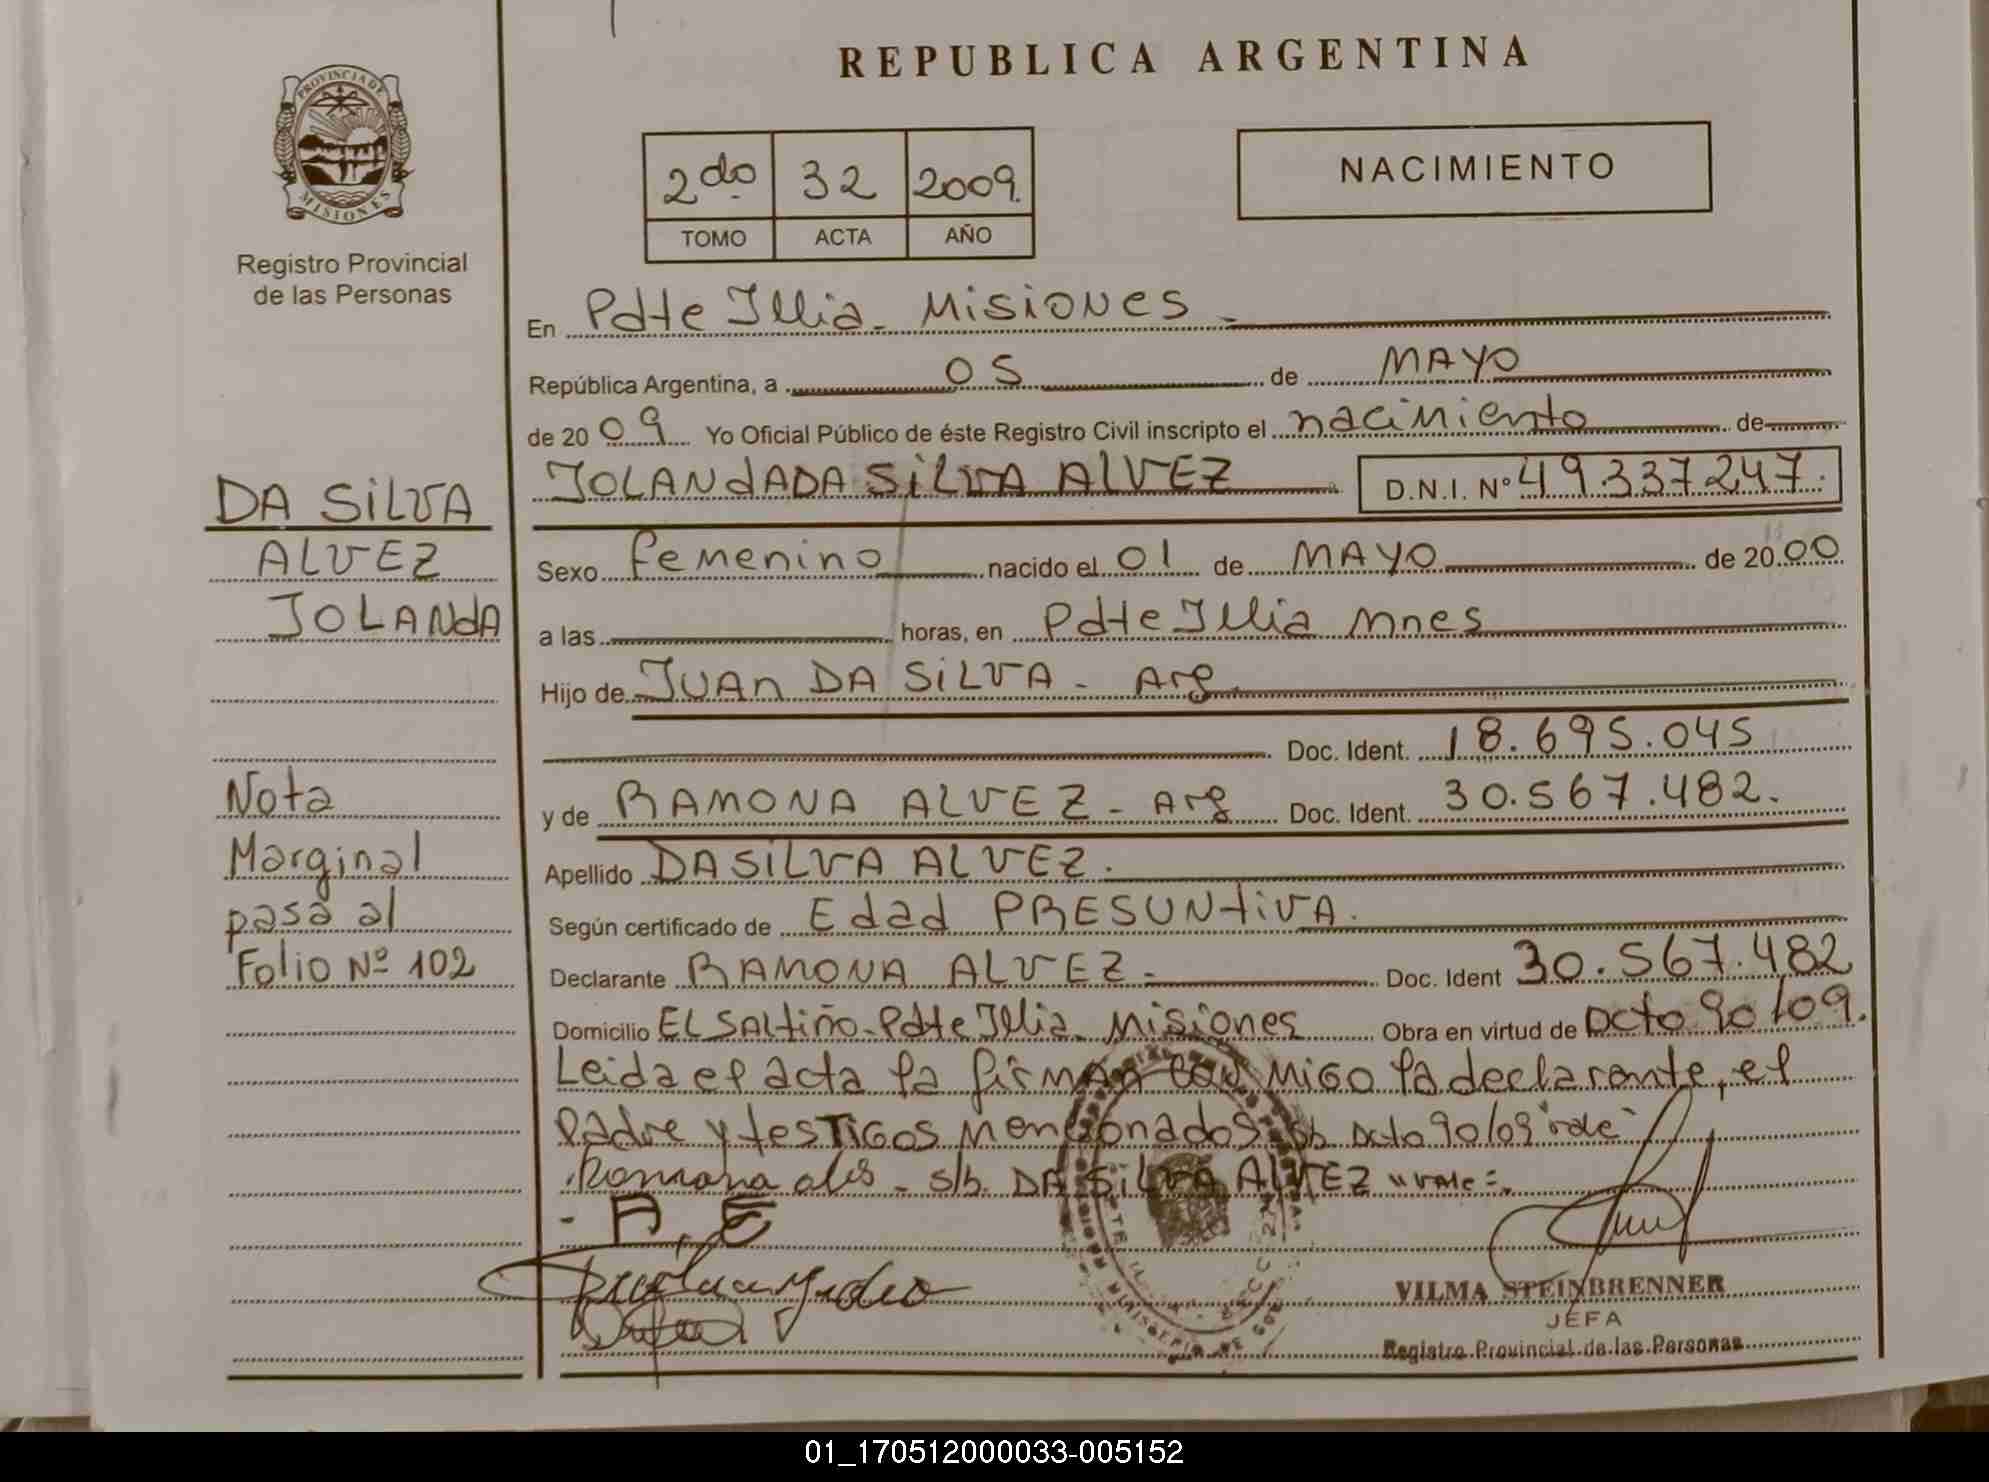 REPUBLICA ARGENTINA
PROVINCIA DE
MISIONES
Registro Provincial
de las Personas
2do 32 2009
TOMO ACTA AÑO
NACIMIENTO
En Pdte Illia - Misiones -
República Argentina, a 05 de MAYO
de 20 09 Yo Oficial Público de éste Registro Civil inscripto el nacimiento de
JOLANdA DA SILVA ALVEZ D.N.I. Nº 49.337.247.
Sexo femenino nacido el 01 de MAYO de 20 00
a las horas, en Pdte Illia Mnes
Hijo de JUAn DA SILVA - Arg.
Doc. Ident. 18.695.045
y de RAMONA ALVEZ - Arg Doc. Ident. 30.567.482.
Apellido DA SILVA ALVEZ.
Según certificado de Edad PRESUNtiVA.
Declarante RAMONA ALVEZ - Doc. Ident 30.567.482
Domicilio EL SALtiÑo - Pdte Illia - Misiones Obra en virtud de Dcto 90/09.
Leida el acta la firman con migo la declarante, el
padre y testigos mencionados. s/b Dcto 90/09 "vale"
s/b. DA SILVA ALVEZ "vale".
DA SILVA
ALVEZ
JOLANdA
Nota
Marginal
pasa al
Folio Nº 102
VILMA STEINBRENNER
JEFA
Registro Provincial de las Personas
01_170512000033-005152